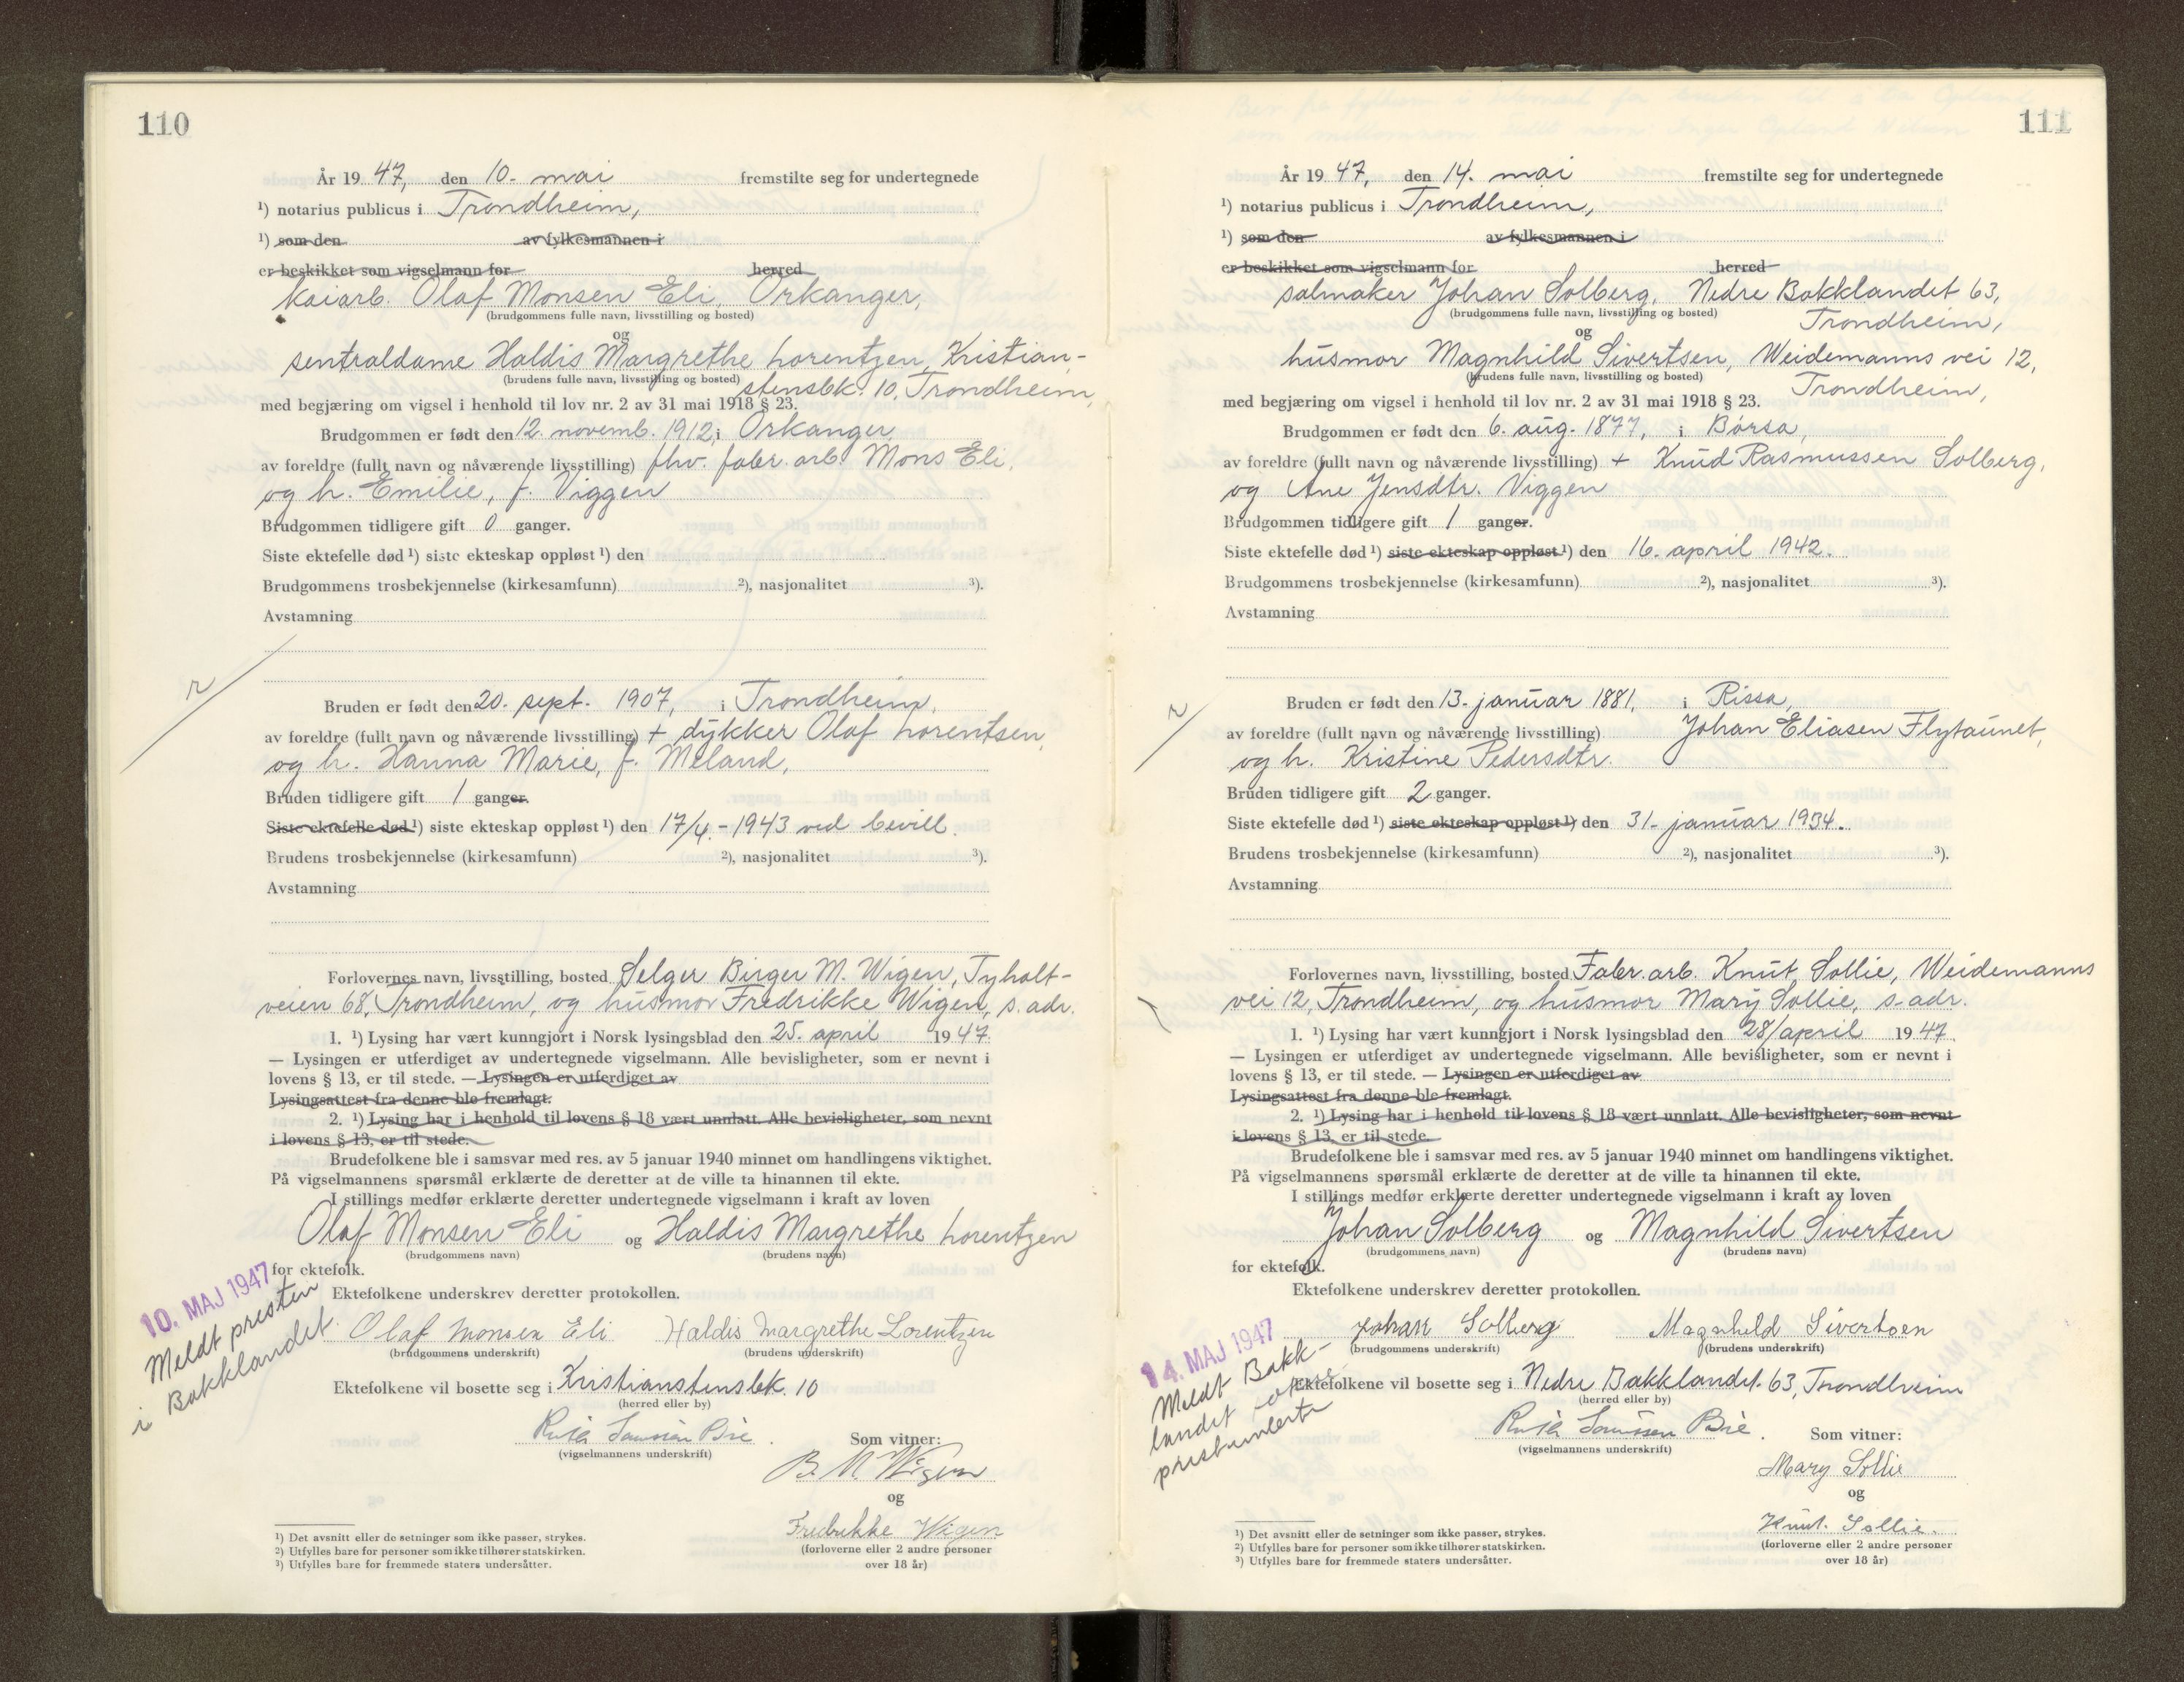 110
År 19 47, den 10. mai fremstilte seg for undertegnede
¹) notarius publicus i Trondheim,
¹) som den av fylkesmannen i
er beskikket som vigselmann for herred
kaiarb. Olaf Monsen Eli, Orkanger,
(brudgommens fulle navn, livsstilling og bosted)
og
sentraldame Haldis Margrethe Lorentzen, Kristian-
(brudens fulle navn, livsstilling og bosted) stensbk. 10, Trondheim,
med begjæring om vigsel i henhold til lov nr. 2 av 31 mai 1918 § 23.
Brudgommen er født den 12. novemb. 1912, i Orkanger,
av foreldre (fullt navn og nåværende livsstilling) fhv. fabr. arb. Mons Eli,
og h. Emilie, f. Viggen
Brudgommen tidligere gift 0 ganger.
Siste ektefelle død ¹) siste ekteskap oppløst ¹) den
Brudgommens trosbekjennelse (kirkesamfunn) ²), nasjonalitet ³).
Avstamning
Bruden er født den 20. sept. 1907, i Trondheim,
av foreldre (fullt navn og nåværende livsstilling) + dykker Olaf Lorentsen,
og h. Hanna Marie, f. Meland,
Bruden tidligere gift 1 ganger.
Siste ektefelle død ¹) siste ekteskap oppløst ¹) den 17/4. - 1943 ved bevill.
Brudens trosbekjennelse (kirkesamfunn) ²), nasjonalitet ³).
Avstamning
Forlovernes navn, livsstilling, bosted Selger Birger M. Wigen, Tyholt-
veien 68, Trondheim, og husmor Fredrikke Wigen, s. adr.
1. ¹) Lysing har vært kunngjort i Norsk lysingsblad den 25. april 1947.
— Lysingen er utferdiget av undertegnede vigselmann. Alle bevisligheter, som er nevnt i
lovens § 13, er til stede. — Lysingen er utferdiget av
Lysingsattest fra denne ble fremlagt.
2. ¹) Lysing har i henhold til lovens § 18 vært unnlatt. Alle bevisligheter, som nevnt
i lovens § 13, er til stede.
Brudefolkene ble i samsvar med res. av 5 januar 1940 minnet om handlingens viktighet.
På vigselmannens spørsmål erklærte de deretter at de ville ta hinannen til ekte.
I stillings medfør erklærte deretter undertegnede vigselmann i kraft av loven
Olaf Monsen Eli og Haldis Margrethe Lorentzen
(brudgommens navn) (brudens navn)
for ektefolk.
10. MAJ 1947
Meldt presten
i Bakklandet.
Ektefolkene underskrev deretter protokollen.
Olaf Monsen Eli Haldis Margrethe Lorentzen
(brudgommens underskrift) (brudens underskrift)
Ektefolkene vil bosette seg i Kristianstensbk. 10
(herred eller by)
Som vitner:
(vigselmannens underskrift)
B. M. Wigen
og
Fredrikke Wigen
(forloverne eller 2 andre personer
over 18 år)
¹) Det avsnitt eller de setninger som ikke passer, strykes.
²) Utfylles bare for personer som ikke tilhører statskirken.
³) Utfylles bare for fremmede staters undersåtter.
111
År 19 47, den 14. mai fremstilte seg for undertegnede
¹) notarius publicus i Trondheim,
¹) som den av fylkesmannen i
er beskikket som vigselmann for herred
salmaker Johan Solberg, Nedre Bakklandet 63,
(brudgommens fulle navn, livsstilling og bosted) Trondheim,
og
husmor Magnhild Sivertsen, Weidemanns vei 12,
(brudens fulle navn, livsstilling og bosted) Trondheim,
med begjæring om vigsel i henhold til lov nr. 2 av 31 mai 1918 § 23.
Brudgommen er født den 6. aug. 1877, i Børsa,
av foreldre (fullt navn og nåværende livsstilling) + Knud Rasmussen Solberg,
og Ane Jensdtr. Viggen
Brudgommen tidligere gift 1 ganger.
Siste ektefelle død ¹) siste ekteskap oppløst ¹) den 16. april 1942.
Brudgommens trosbekjennelse (kirkesamfunn) ²), nasjonalitet ³).
Avstamning
Bruden er født den 13. januar 1881, i Rissa,
av foreldre (fullt navn og nåværende livsstilling) Johan Eliasen Flytaunet,
og h. Kristine Pedersdtr.
Bruden tidligere gift 2 ganger.
Siste ektefelle død ¹) siste ekteskap oppløst ¹) den 31. januar 1934.
Brudens trosbekjennelse (kirkesamfunn) ²), nasjonalitet ³).
Avstamning
Forlovernes navn, livsstilling, bosted Fabr. arb. Knut Sollie, Weidemanns
vei 12, Trondheim, og husmor Mary Sollie, s. adr.
1. ¹) Lysing har vært kunngjort i Norsk lysingsblad den 28/april 1947.
— Lysingen er utferdiget av undertegnede vigselmann. Alle bevisligheter, som er nevnt i
lovens § 13, er til stede. — Lysingen er utferdiget av
Lysingsattest fra denne ble fremlagt.
2. ¹) Lysing har i henhold til lovens § 18 vært unnlatt. Alle bevisligheter, som nevnt
i lovens § 13, er til stede.
Brudefolkene ble i samsvar med res. av 5 januar 1940 minnet om handlingens viktighet.
På vigselmannens spørsmål erklærte de deretter at de ville ta hinannen til ekte.
I stillings medfør erklærte deretter undertegnede vigselmann i kraft av loven
Johan Solberg og Magnhild Sivertsen
(brudgommens navn) (brudens navn)
for ektefolk.
Ektefolkene underskrev deretter protokollen.
14. MAJ 1947
Meldt Bakk-
landet
Johan Solberg Magnhild Sivertsen
(brudgommens underskrift) (brudens underskrift)
Ektefolkene vil bosette seg i Nedre Bakklandet 63, Trondheim
(herred eller by)
Som vitner:
(vigselmannens underskrift)
Mary Sollie
og
Knut Sollie.
(forloverne eller 2 andre personer
over 18 år)
¹) Det avsnitt eller de setninger som ikke passer, strykes.
²) Utfylles bare for personer som ikke tilhører statskirken.
³) Utfylles bare for fremmede staters undersåtter.